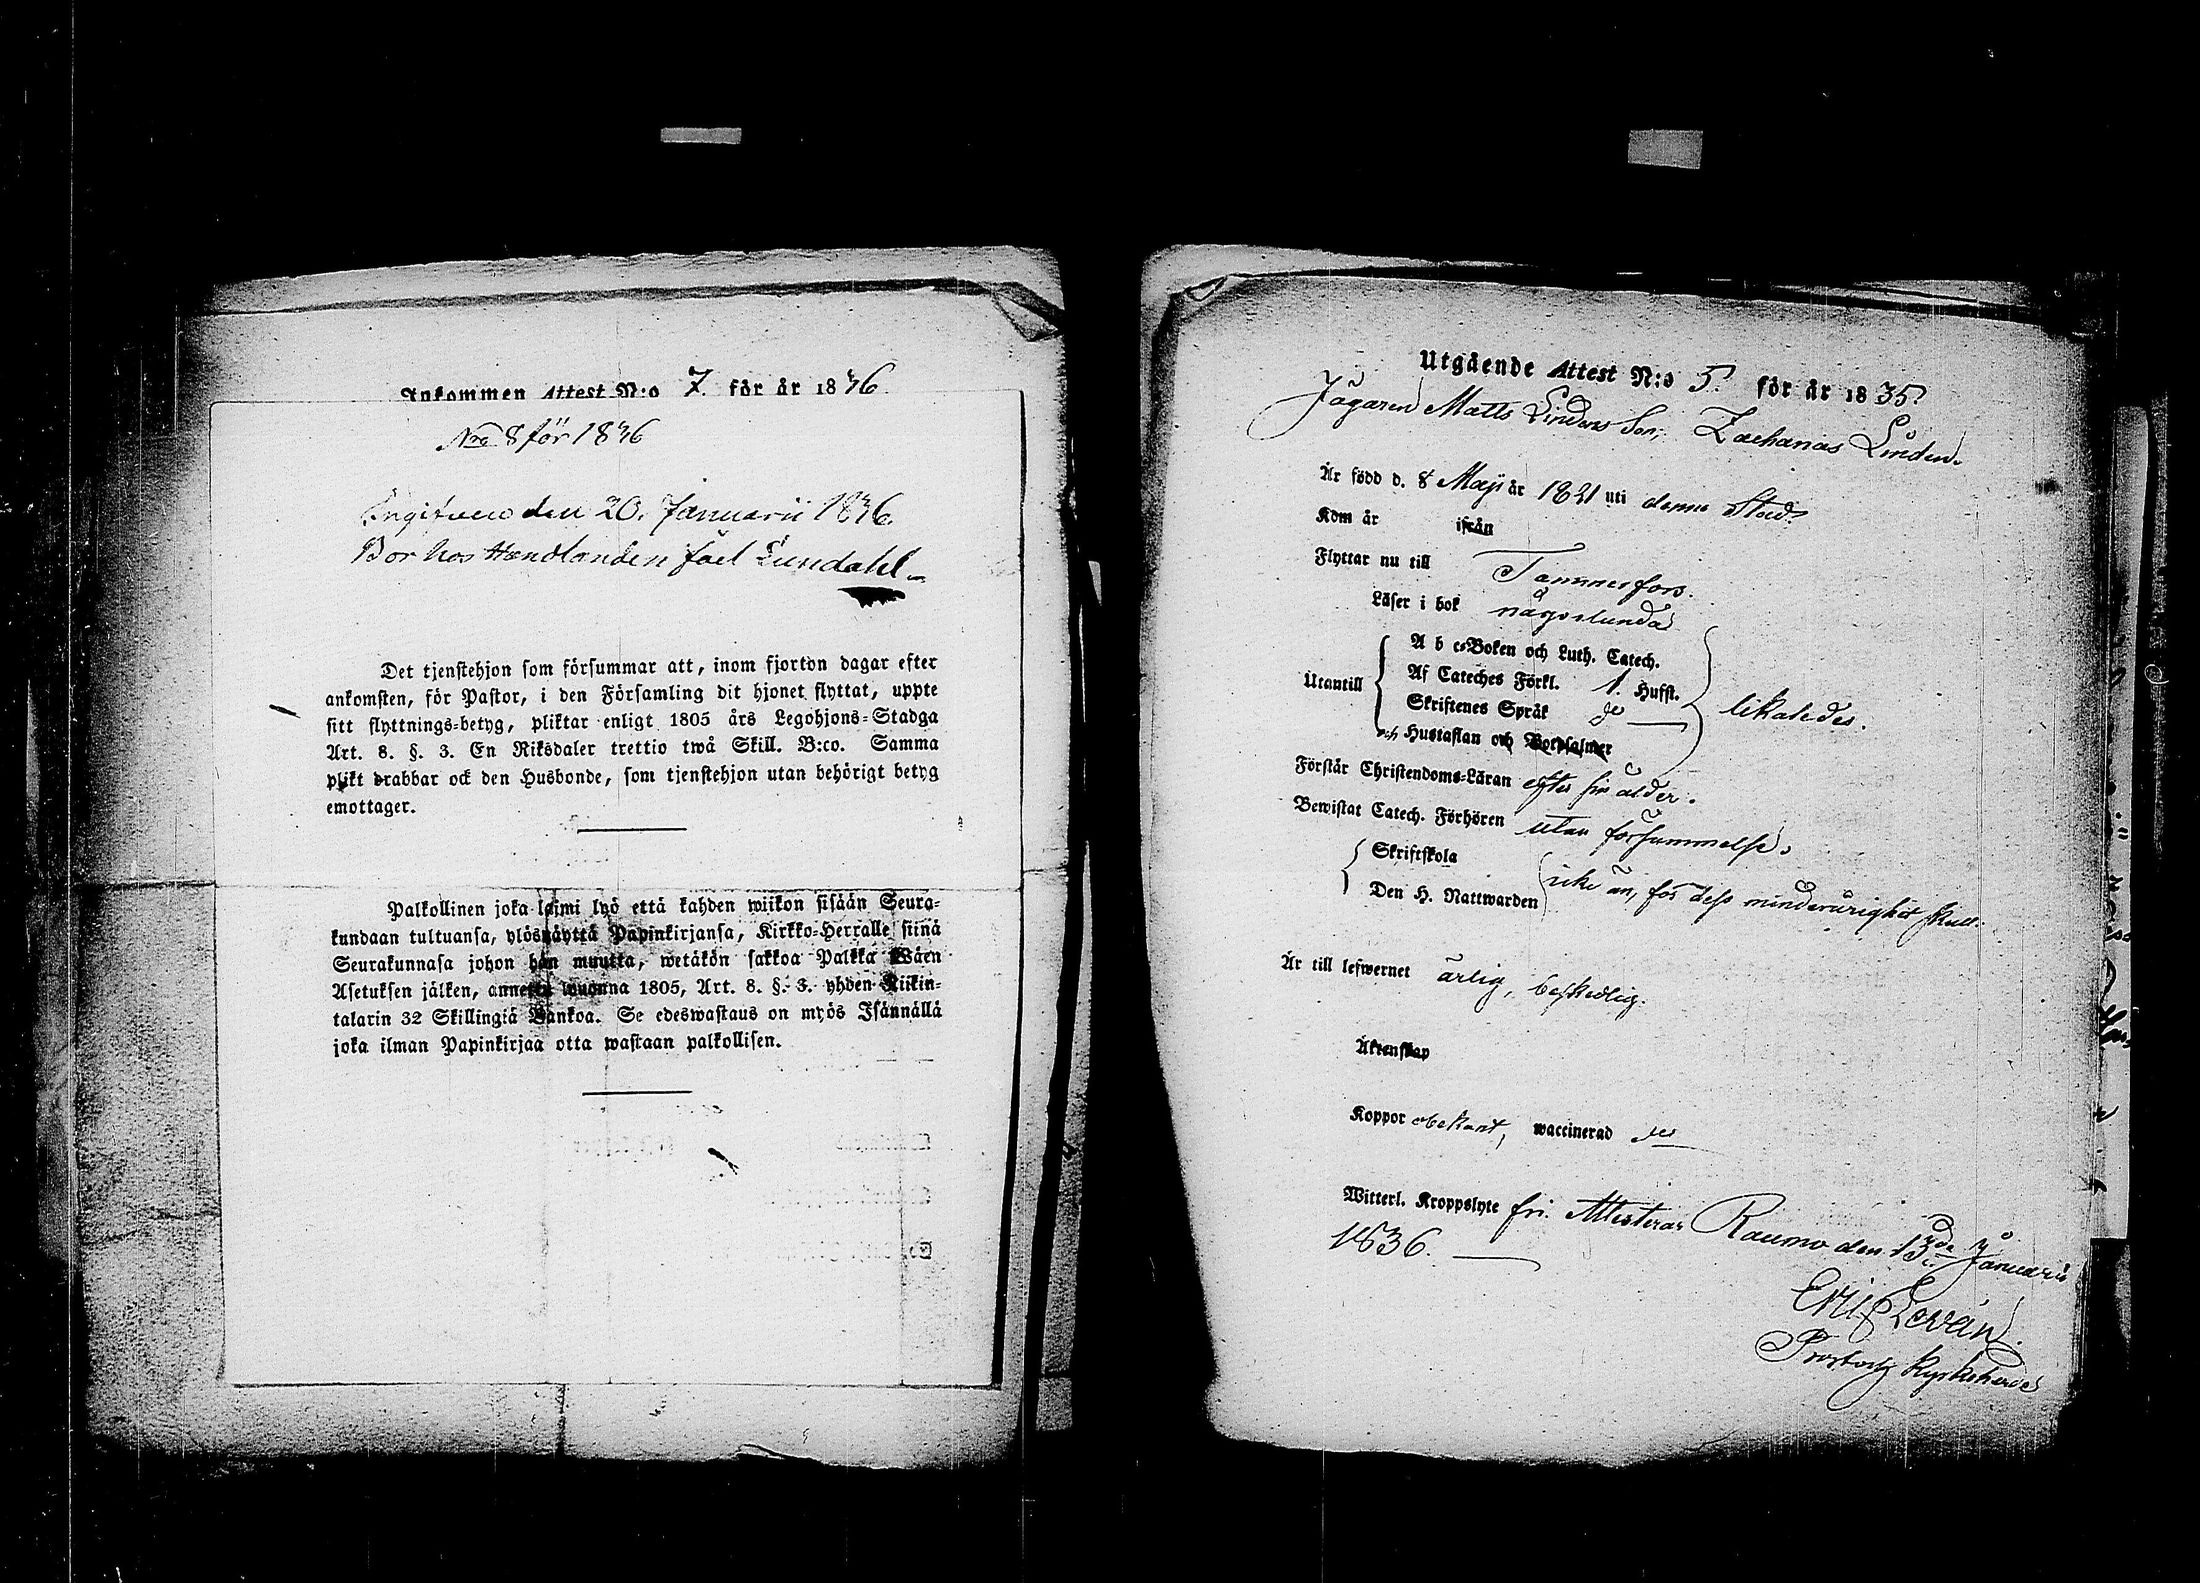 Inkommen Attest N:o 7. för år 1836
Nro 8 för 1836
Ingifven den 20. Januarii 1836.
Bor hos Handlanden Joel Lundahl
Det tjenstehjon som försummar att, inom fjorton dagar efter
ankomsten, för Pastor, i den Församling dit hjonet flyttat, uppte
sitt flyttnings-betyg, pliktar enligt 1805 års Legohjons-Stadga
Art. 8. §. 3. En Riksdaler trettio twå Skill. B:co. Samma
plikt drabbar ock den Husbonde, som tjenstehjon utan behörigt betyg
emottager.
Palkollinen joka laimi lyö että kahden wiikon sisään Seura-
kundaan tultuansa, ylösnäyttä Papinkirjansa, Kirkko-Herralle siinä
Seurakunnasa johon hän muutta, wetäkön sakkoa Palkka Wäen
Asetuksen jälken, annettu wuonna 1805, Art. 8. §. 3. yhden Riikin-
talarin 32 Skillingiä Bankoa. Se edeswastaus on myös Isännällä
joka ilman Papinkirjaa otta wastaan palkollisen.
Utgående Attest N:o 5. för år 1835.
Jägaren Matts Lindens Son, Zacharias Linden.
Är född d. 8 Maji år 1821 uti denna Stad.
Kom år ifrån
Flyttar nu till Tammerfors.
Läser i bok någorlunda
Utantill
A b c-Boken och Luth. Catech.
Af Cateches Förkl. 1. Hufst.
Skriftenes Språk do
och Hustaflan och Botpsalmer
likaledes.
Förstår Christendoms-Läran efter sin ålder.
Bewistat Catech. Förhören utan försummelse.
Skriftskola
Den H. Nattwarden
icke än, för dess minderårighet skull.
Är till lefwernet ärlig, beskedlig.
Äktenskap
Koppor obekant, waccinerad
Witterl. Kroppslyte fri. Attesteras Raumo den 13de Januarii
1836.
Eric Levän.
Prost och Kyrkoherde